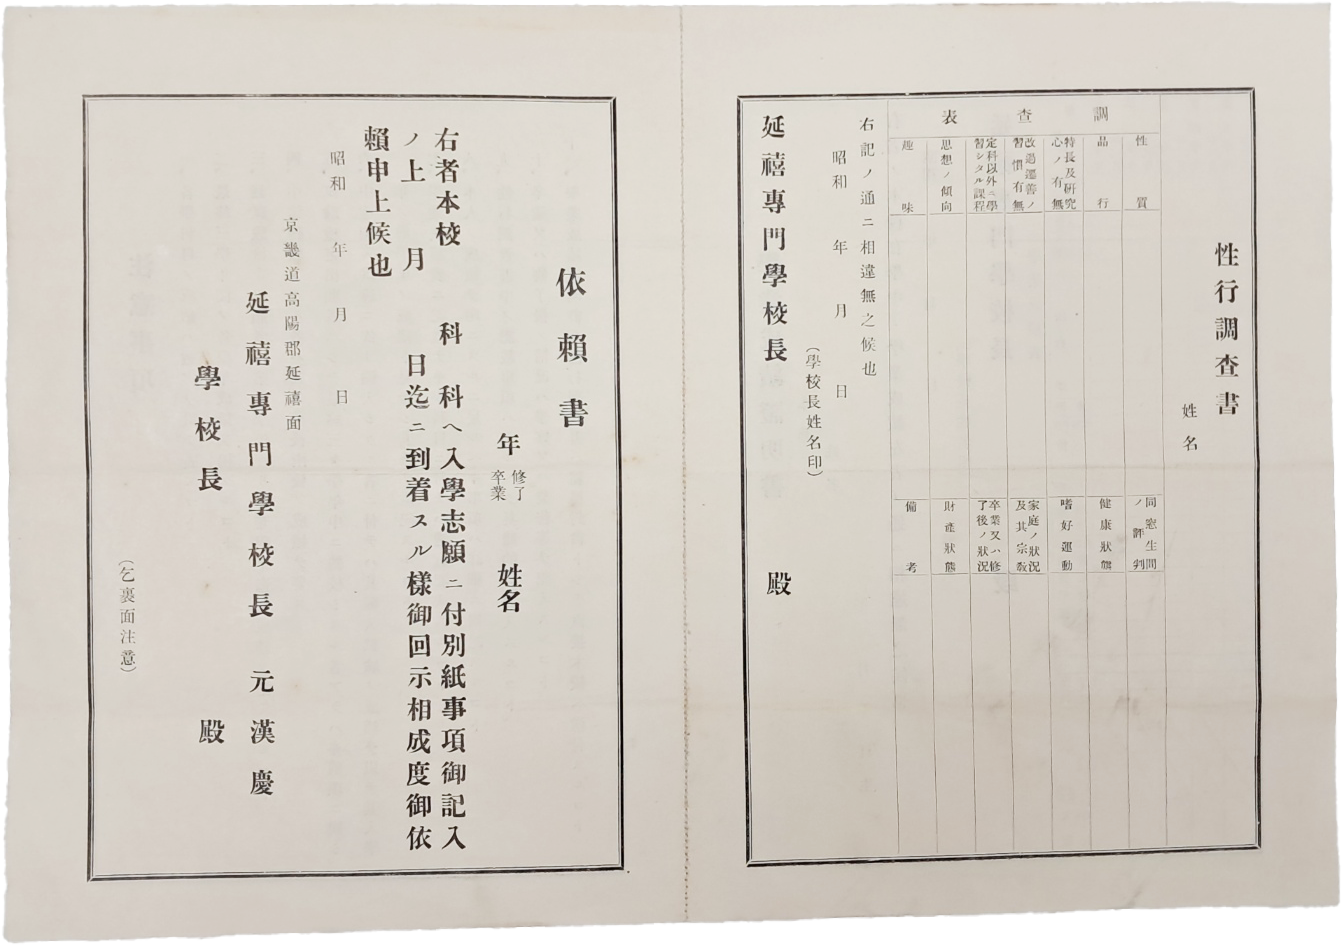 性行調査書
姓名
調査表
性質
品行
特長及研究心ノ有無
改過遷善ノ習慣有無
定科以外ニ學習シタル課程
思想ノ傾向
趣味
同窓生間ノ評判
健康狀態
嗜好運動
家庭ノ狀況及其宗敎
卒業又ハ修了後ノ狀況
財產狀態
備考
右記ノ通ニ相違無之候也
昭和 年 月 日
(學校長姓名印)
延禧專門學校長 殿
依賴書
年 修了 卒業 姓名
右者本校 科 科ヘ入學志願ニ付別紙事項御記入
ノ上 月 日迄ニ到着スル樣御回示相成度御依
賴申上候也
昭和 年 月 日
京畿道高陽郡延禧面
延禧專門學校長 元漢慶
學校長 殿
(乞裏面注意)